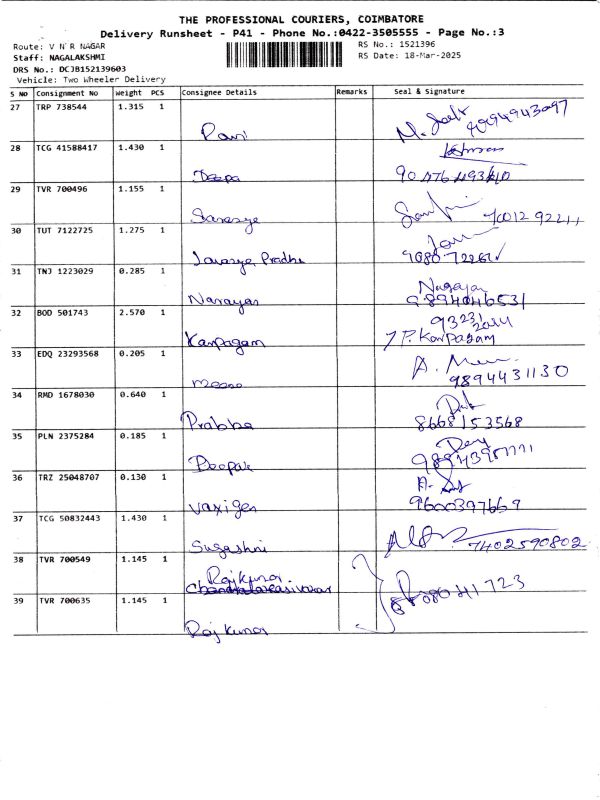 THE PROFESSIONAL COURIERS, COIMBATORE
Delivery Runsheet - P41 - Phone No.:0422-3505555 - Page No.:3
Route: V N R NAGAR
RS No.: 1521396
Staff: NAGALAKSHMI
RS Date: 18-Mar-2025
DRS No.: DCJB152139603
Vehicle: Two Wheeler Delivery
S No Consignment No Weight PCS Consignee Details Remarks Seal & Signature
27 TRP 738544 1.315 1
Ravi
28 TCG 41588417 1.430 1
Deepa
29 TVR 700496 1.155 1
30 TUT 7122725 1.275 1
Pradha
31 TNJ 1223029 0.285 1 Nagajan
Narayan 9894046531
32 BOD 501743 2.570 1
Karpagam P. Karpagam
33 EDQ 23293568 0.205 1
Meena 9894431130
34 RMD 1678030 0.640 1
Prabha 8668153568
35 PLN 2375284 0.185 1
Deepak
36 TRZ 25048707 0.130 1
9600397669
37 TCG 50832443 1.430 1
Sugashri 7402590802
38 TVR 700549 1.145 1
Rajkumar
39 TVR 700635 1.145 1
Rajkumar